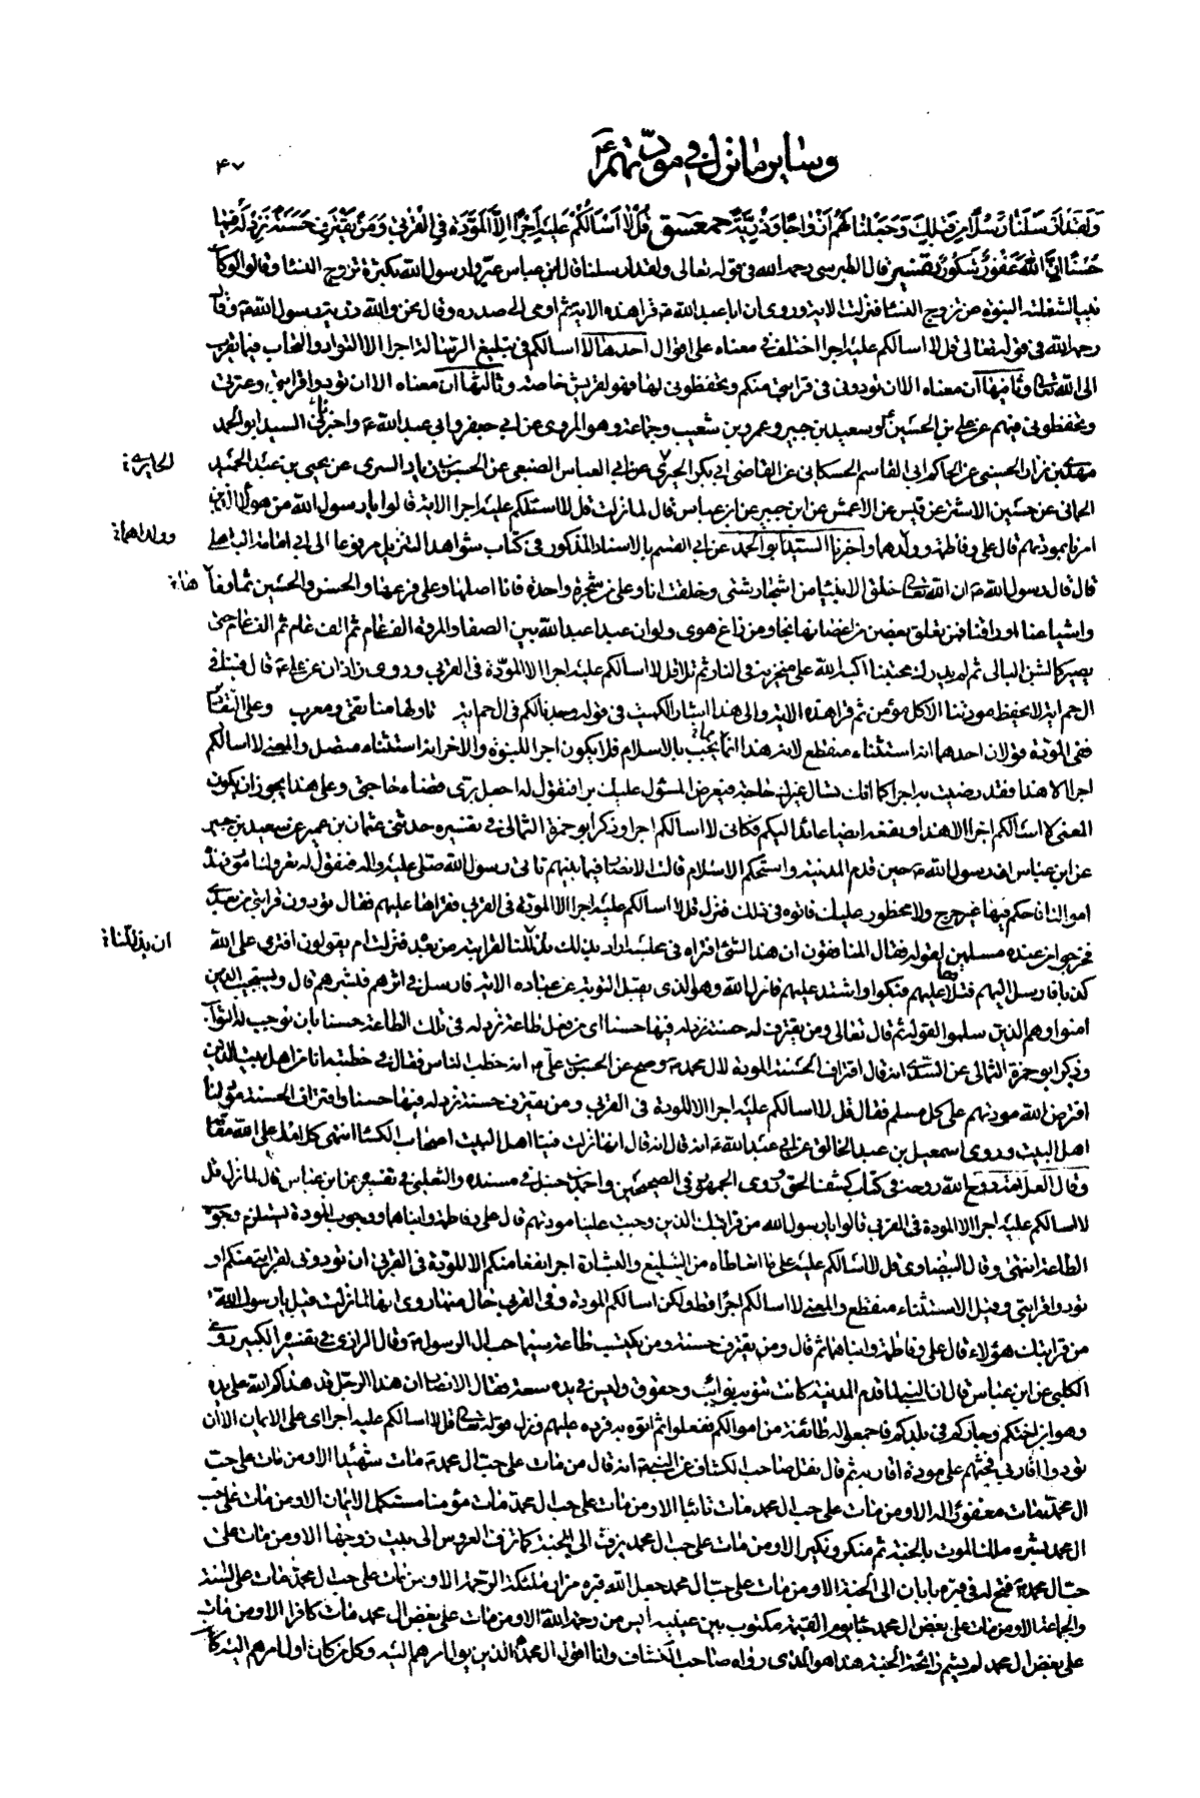 وسایر ما نزل فی مودتهم ع
۴۷
وَلَقَدْ اَرْسَلْنَا رُسُلًا مِنْ قَبْلِكَ وَجَعَلْنَا لَهُمْ اَزْوَاجًا وَذُرِّيَّةً حمعسق قُلْ لَا اَسْاَلُكُمْ عَلَيْهِ اَجْرًا اِلَّا الْمَوَدَّةَ فِي الْقُرْبٰى وَمَنْ يَقْتَرِفْ حَسَنَةً نَزِدْ لَهُ فِيهَا
حُسْنًا اِنَّ اللّٰهَ غَفُورٌ شَكُورٌ تفسير قال الطبرسى رحمه الله فى قوله تعالى ولقد ارسلنا قال ابن عباس عيروا رسول الله بكثرة تزوج النساء وقالوا لو كان
نبيا لشغلته النبوة عن تزوج النساء فنزلت الاية وروى ان ابا عبد الله ع قرا هذه الاية ثم اومى الى صدره وقال نحن والله ذرية رسول الله ص وقال
رحمه الله فى قوله تعالى قل لا اسالكم عليه اجرا اختلف فى معناه على اقوال احدها لا اسالكم فى تبليغ الرسالة اجرا الا التواد والتحاب فيما يقرب
الى الله تعالى وثانيها ان معناه الا ان تودونى فى قرابتى منكم وتحفظونى لها فهو لقريش خاصة وثالثها ان معناه الا ان تودوا قرابتى وعترتى
وتحفظونى فيهم عن على بن الحسين ع وسعيد بن جبير وعمرو بن شعيب وجماعة وهو المروى عن ابى جعفر وابى عبد الله ع واخبرنا السيد ابو الحمد
مهدى بن نزار الحسينى عن الحاكم ابى القاسم الحسكانى عن القاضى ابى بكر الحيرى عن ابى العباس الضبعى عن الحسن بن زياد السرى عن يحيى بن عبد الحميد
الحمانى عن حسين الاشتر عن قيس عن الاعمش عن ابن جبير عن ابن عباس قال لما نزلت قل لا اسئلكم عليه اجرا الاية قالوا يا رسول الله من هؤلاء الذين
امرنا بمودتهم قال على وفاطمة وولدهما واخبرنا السيد ابو الحمد عن ابى القسم بالاسناد المذكور فى كتاب شواهد التنزيل مرفوعا الى ابى امامة الباهلى
وولداهما
قال قال رسول الله ص ان الله تعالى خلق الانبياء من اشجار شتى وخلقت انا وعلى من شجرة واحدة فانا اصلها وعلى فرعها والحسن والحسين ثمارها
واشياعنا اوراقها فمن تعلق بغصن من اغصانها نجا ومن زاغ هوى ولو ان عبدا عبد الله بين الصفا والمروة الف عام ثم الف عام ثم الف عام حتى
يصير كالشن البالى ثم لم يدرك محبتنا اكبه الله على منخريه فى النار ثم تلا قل لا اسالكم عليه اجرا الا المودة فى القربى وروى زاذان عن على ع قال فينا فى
ال حم اية لا يحفظ مودتنا الا كل مؤمن ثم قرا هذه الاية والى هذا اشار الكميت فى قوله وجدنا لكم فى ال حم اية تاولها منا تقى ومعرب وعلى التقادير
ففى المودة قولان احدهما انه استثناء منقطع لان هذا انما يجب بالاسلام فلا يكون اجرا للنبوة والاخر انه استثناء متصل والمعنى لا اسالكم
اجرا الا هذا فقد رضيت به اجرا كما انك تسال غيرك حاجة فيعرض المسؤل عليك برا فتقول له اجعل برى قضاء حاجتى وعلى هذا يجوز ان يكون
المعنى لا اسالكم اجرا الا هذا ونفعه ايضا عائد اليكم فكانى لا اسالكم اجرا وذكر ابو حمزة الثمالى فى تفسيره حدثنى عثمان بن عمير عن سعيد بن جبير
عن ابن عباس ان رسول الله ص حين قدم المدينة واستحكم الاسلام قالت الانصار فيما بينهم ناتى رسول الله صلى عليه واله فنقول له تعروك امور فهذه
اموالنا فاحكم فيها غير حرج ولا محظور عليك فاتوه فى ذلك فنزل قل لا اسالكم عليه اجرا الا المودة فى القربى فقراها عليهم فقال تودون قرابتى من بعدى
فخرجوا من عنده مسلمين لقوله فقال المنافقون ان هذا لشئ افتراه فى مجلسه اراد بذلك يذللنا لقرابته من بعده فنزلت ام يقولون افترى على الله
ان يذللنا
كذبا فارسل اليهم فتلاها عليهم فبكوا واشتد عليهم فانزل الله وهو الذى يقبل التوبة عن عباده الاية فارسل فى اثرهم فبشرهم قال ويستجيب الذين
امنوا وهم الذين سلموا لقوله ثم قال تعالى ومن يقترف حسنة نزد له فيها حسنا اى من فعل طاعة نزد له فى تلك الطاعة حسنا بان نوجب له الثواب
وذكر ابو حمزة الثمالى عن السدى انه قال اقتراف الحسنة المودة لال محمد ص وصح عن الحسن بن على ع انه خطب الناس فقال فى خطبته انا من اهل بيت الذين
افترض الله مودتهم على كل مسلم فقال قل لا اسالكم عليه اجرا الا المودة فى القربى ومن يقترف حسنة نزد له فيها حسنا واقتراف الحسنة مودتنا
اهل البيت وروى اسمعيل بن عبد الخالق عن ابى عبد الله ع انه قال انها نزلت فينا اهل البيت اصحاب الكساء انتهى كلامه اعلى الله مقامه
وقال العلامة روح الله روحه فى كتاب كشف الحق روى الجمهور فى الصحيحين واحمد بن حنبل فى مسنده والثعلبى فى تفسيره عن ابن عباس قال لما نزل قل
لا اسالكم عليه اجرا الا المودة فى القربى قالوا يا رسول الله من قرابتك الذين وجبت علينا مودتهم قال على وفاطمة وابناهما ووجوب المودة يستلزم وجوب
الطاعة انتهى وقال البيضاوى قل لا اسالكم عليه على ما اتعاطاه من التبليغ والبشارة اجرا نفعا منكم الا المودة فى القربى ان تودونى لقرابتى منكم او
تودوا قرابتى وقيل الاستثناء منقطع والمعنى لا اسالكم اجرا قط ولكن اسالكم المودة وفى القربى حال منها روى انها لما نزلت قيل يا رسول الله
من قرابتك هؤلاء قال على وفاطمة وابناهما ثم قال ومن يقترف حسنة ومن يكتسب طاعة سيما حب ال الرسول ص وقال الرازى فى تفسيره الكبير روى
الكلبى عن ابن عباس قال ان النبى لما قدم المدينة كانت تنوبه نوائب وحقوق وليس فى يده سعة فقال الانصار ان هذا الرجل قد هداكم الله على يده
وهو ابن اختكم وجاركم فى بلدكم فاجمعوا له طائفة من اموالكم ففعلوا ثم اتوه به فرده عليهم ونزل قوله تعالى قل لا اسالكم عليه اجرا اى على الايمان الا ان
تودوا اقاربى فحثهم على مودة اقاربه ثم قال نقل صاحب الكشاف عن النبى ص انه قال من مات على حب ال محمد ص مات شهيدا الا ومن مات على حب
ال محمد مات مغفورا له الا ومن مات على حب ال محمد مات تائبا الا ومن مات على حب ال محمد مات مؤمنا مستكمل الايمان الا ومن مات على حب
ال محمد بشره ملك الموت بالجنة ثم منكر ونكير الا ومن مات على حب ال محمد يزف الى الجنة كما تزف العروس الى بيت زوجها الا ومن مات على
حب ال محمد ص فتح له فى قبره بابان الى الجنة الا ومن مات على حب ال محمد جعل الله قبره مزار ملئكة الرحمة الا ومن مات على حب ال محمد مات على السنة
والجماعة الا ومن مات على بغض ال محمد جاء يوم القيمة مكتوب بين عينيه ايس من رحمة الله الا ومن مات على بغض ال محمد مات كافرا الا ومن مات
على بغض ال محمد لم يشم رائحة الجنة هذا هو الذى رواه صاحب الكشاف وانا اقول ال محمد ص هم الذين يؤل امرهم اليه وكل من كان اول امرهم اليه كان